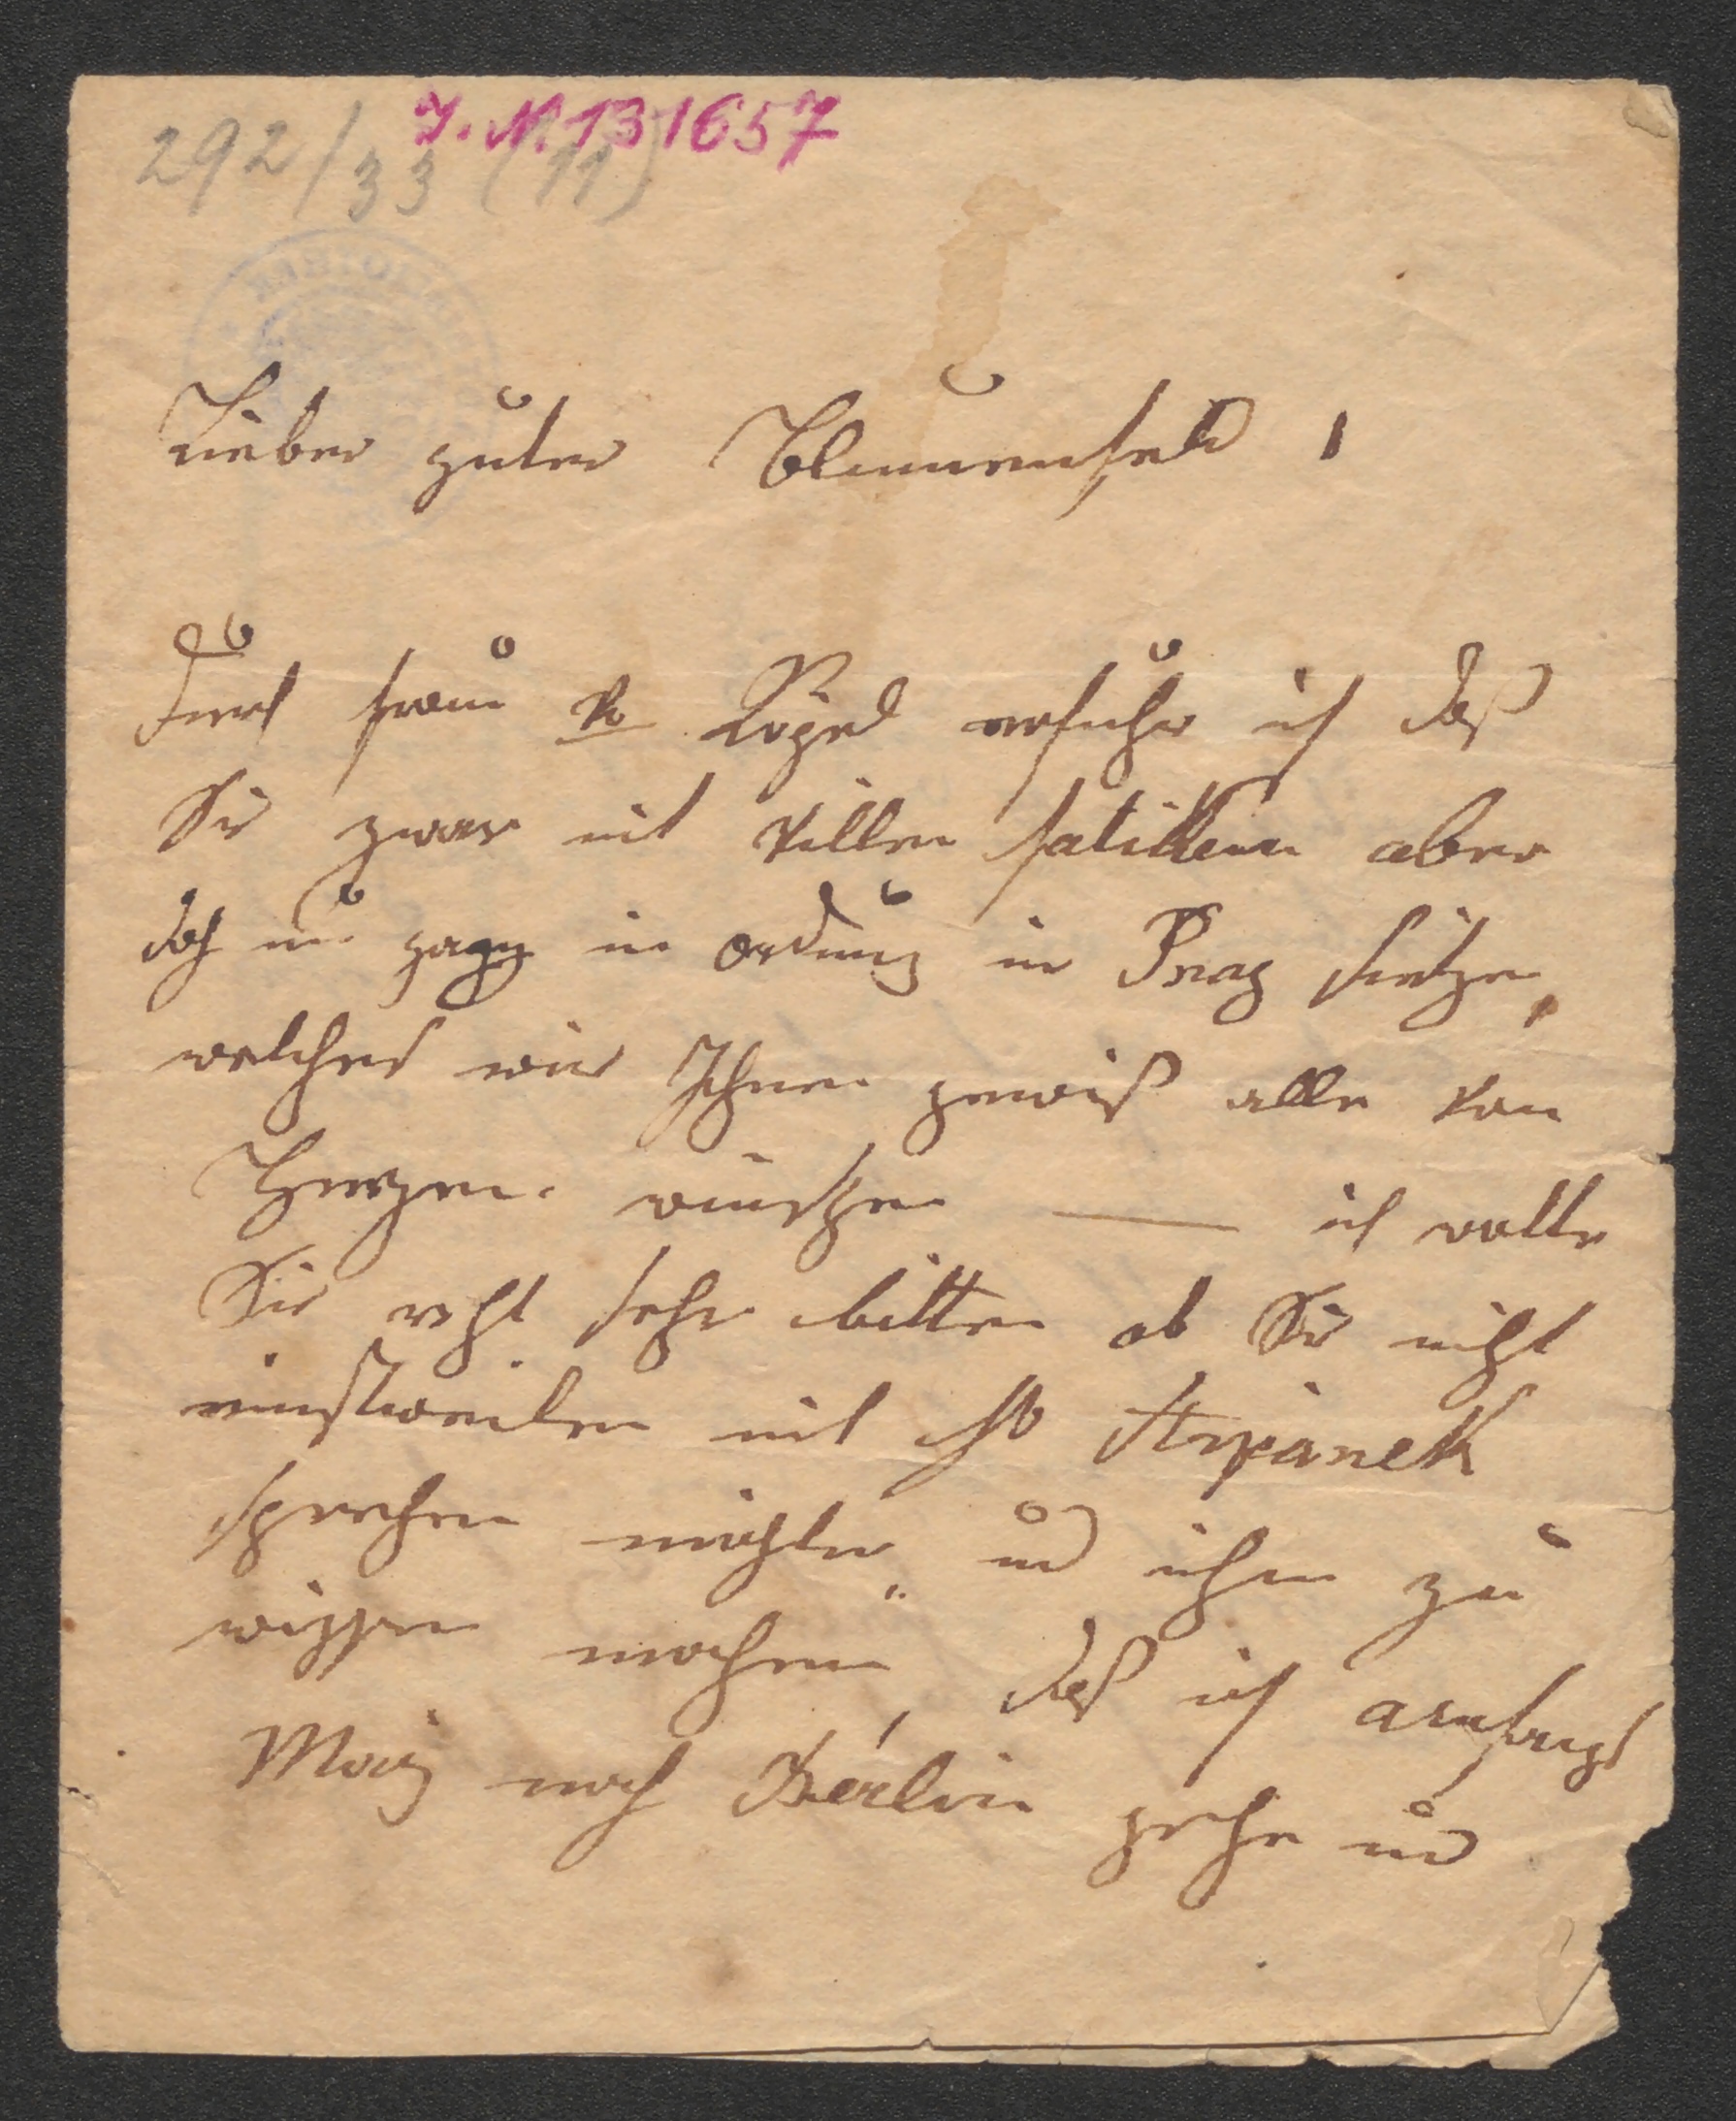 J.N. 131657
292/33 (11)
Lieber guter Blumenfeld !
durch frau v Vogel erfuhr ich daß
Sie zwar mit villen fatikhen aber
doch nun in ordnung in Prag sietzen,
welches wir Ihnen gewiß alle von
Herzen wünschen — ich wollte
Sie recht sehr bitten ob Sie nicht
einstweilen mit H Stepanek
sprechen möchten, und ihm zu
wissen machen, daß ich anfangs
May nach Berlin gehe und